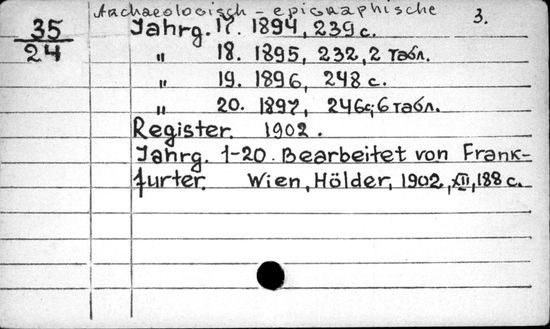 Archaeologisch - epigraphische
3.
35
24
Jahrg. 17. 1894, 239 c.
" 18. 1895, 232, 2 табл.
" 19. 1896, 248 c.
" 20. 1897, 246c; 6 табл.
Register. 1902.
Jahrg. 1-20. Bearbeitet von Frank-
furter. Wien, Hölder, 1902, XII, 188 c.